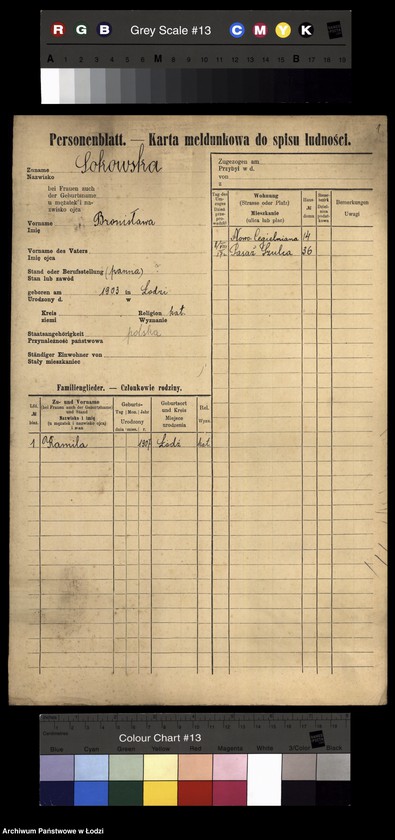 R G B Grey Scale #13 C M Y K
A 1 2 3 4 5 6 M 8 9 10 11 12 13 14 15 B 17 18 19
Personenblatt. — Karta meldunkowa do spisu ludności.
Zuname
Nazwisko
Sokowska
bei Frauen auch
der Geburtsname
u mężatek i na-
zwisko ojca
Vorname Bronisława
Imię
Vorname des Vaters
Imię ojca
Stand oder Berufsstellung (panna)
Stan lub zawód
geboren am 1903 in Łodzi
Urodzony d. w
Kreis Religion kat.
ziemi Wyznanie
Staatsangehörigkeit polska
Przynależność państwowa
Ständiger Einwohner von
Stały mieszkaniec
Zugezogen am
Przybył w d.
von
z
Wohnung
(Strasse oder Platz)
Mieszkanie
(ulica lub plac)
Bemerkungen
Uwagi
Nowo Cegielniana 14
36
Familienglieder. — Członkowie rodziny.
Zu- und Vorname
(bei Frauen auch der Geburtsname)
und Stand
Nazwisko i imię
(u mężatek i nazwisko ojca)
i stan
Geburts-
Tag | Mon. | Jahr
Urodzony
dnia mies. r.
Geburtsort
und Kreis
Miejsce
urodzenia
Rel.
Wyzn.
1 Kamila 1907 Łódź kat.
Colour Chart #13
Blue Cyan Green Yellow Red Magenta White 3/Color Black
Archiwum Państwowe w Łodzi